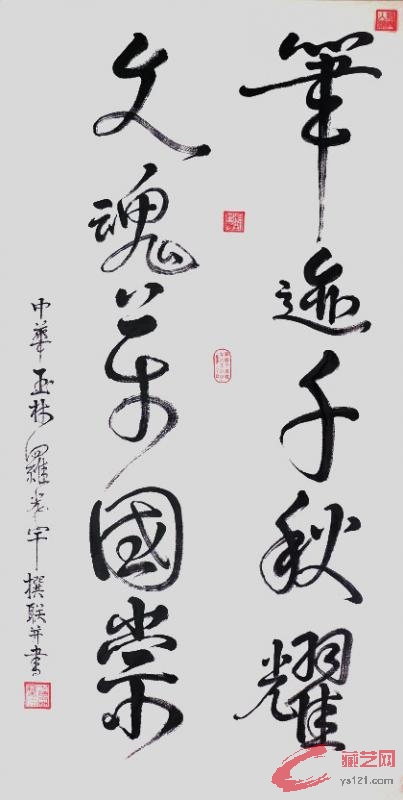 筆迹千秋耀
文魂萬國崇
中華玉林羅光宇撰联并書
藏艺网
ys121.com